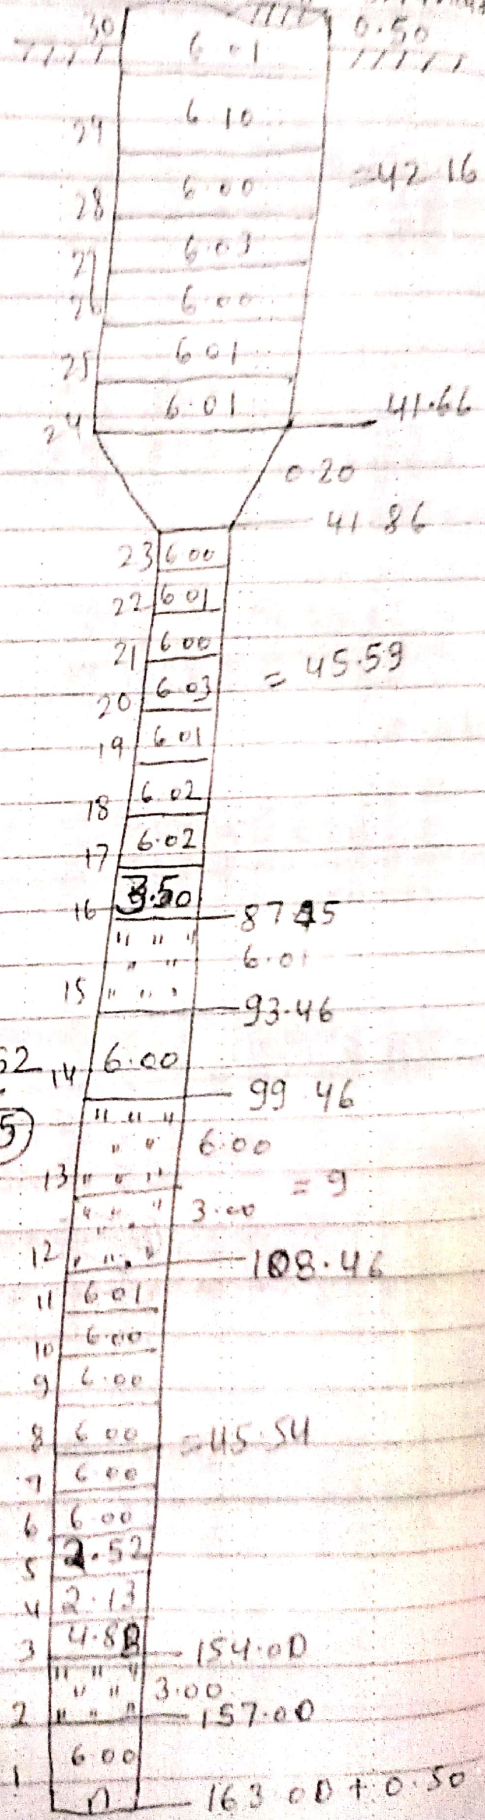 30 6.01 0.50
29 6.10
= 42.16
28 6.00
27 6.03
26 6.00
25 6.01
24 6.01 41.66
0.20
41.86
23 6.00
22 6.01
21 6.00
= 45.59
20 6.03
19 6.01
18 6.02
17 6.02
16 3.50
87.45
" " "
" " 6.01
15 " " "
93.46
52
14 6.00
99.46
5
" " "
" " 6.00
13 " " "
= 9
" " "
" " 3.00
12 " " "
108.46
11 6.01
10 6.00
9 6.00
8 6.00 = 45.54
7 6.00
6 6.00
5 2.52
4 2.13
3 4.88
154.00
" " "
" " 3.00
2 " " " 157.00
6.00
1
163.00 + 0.50